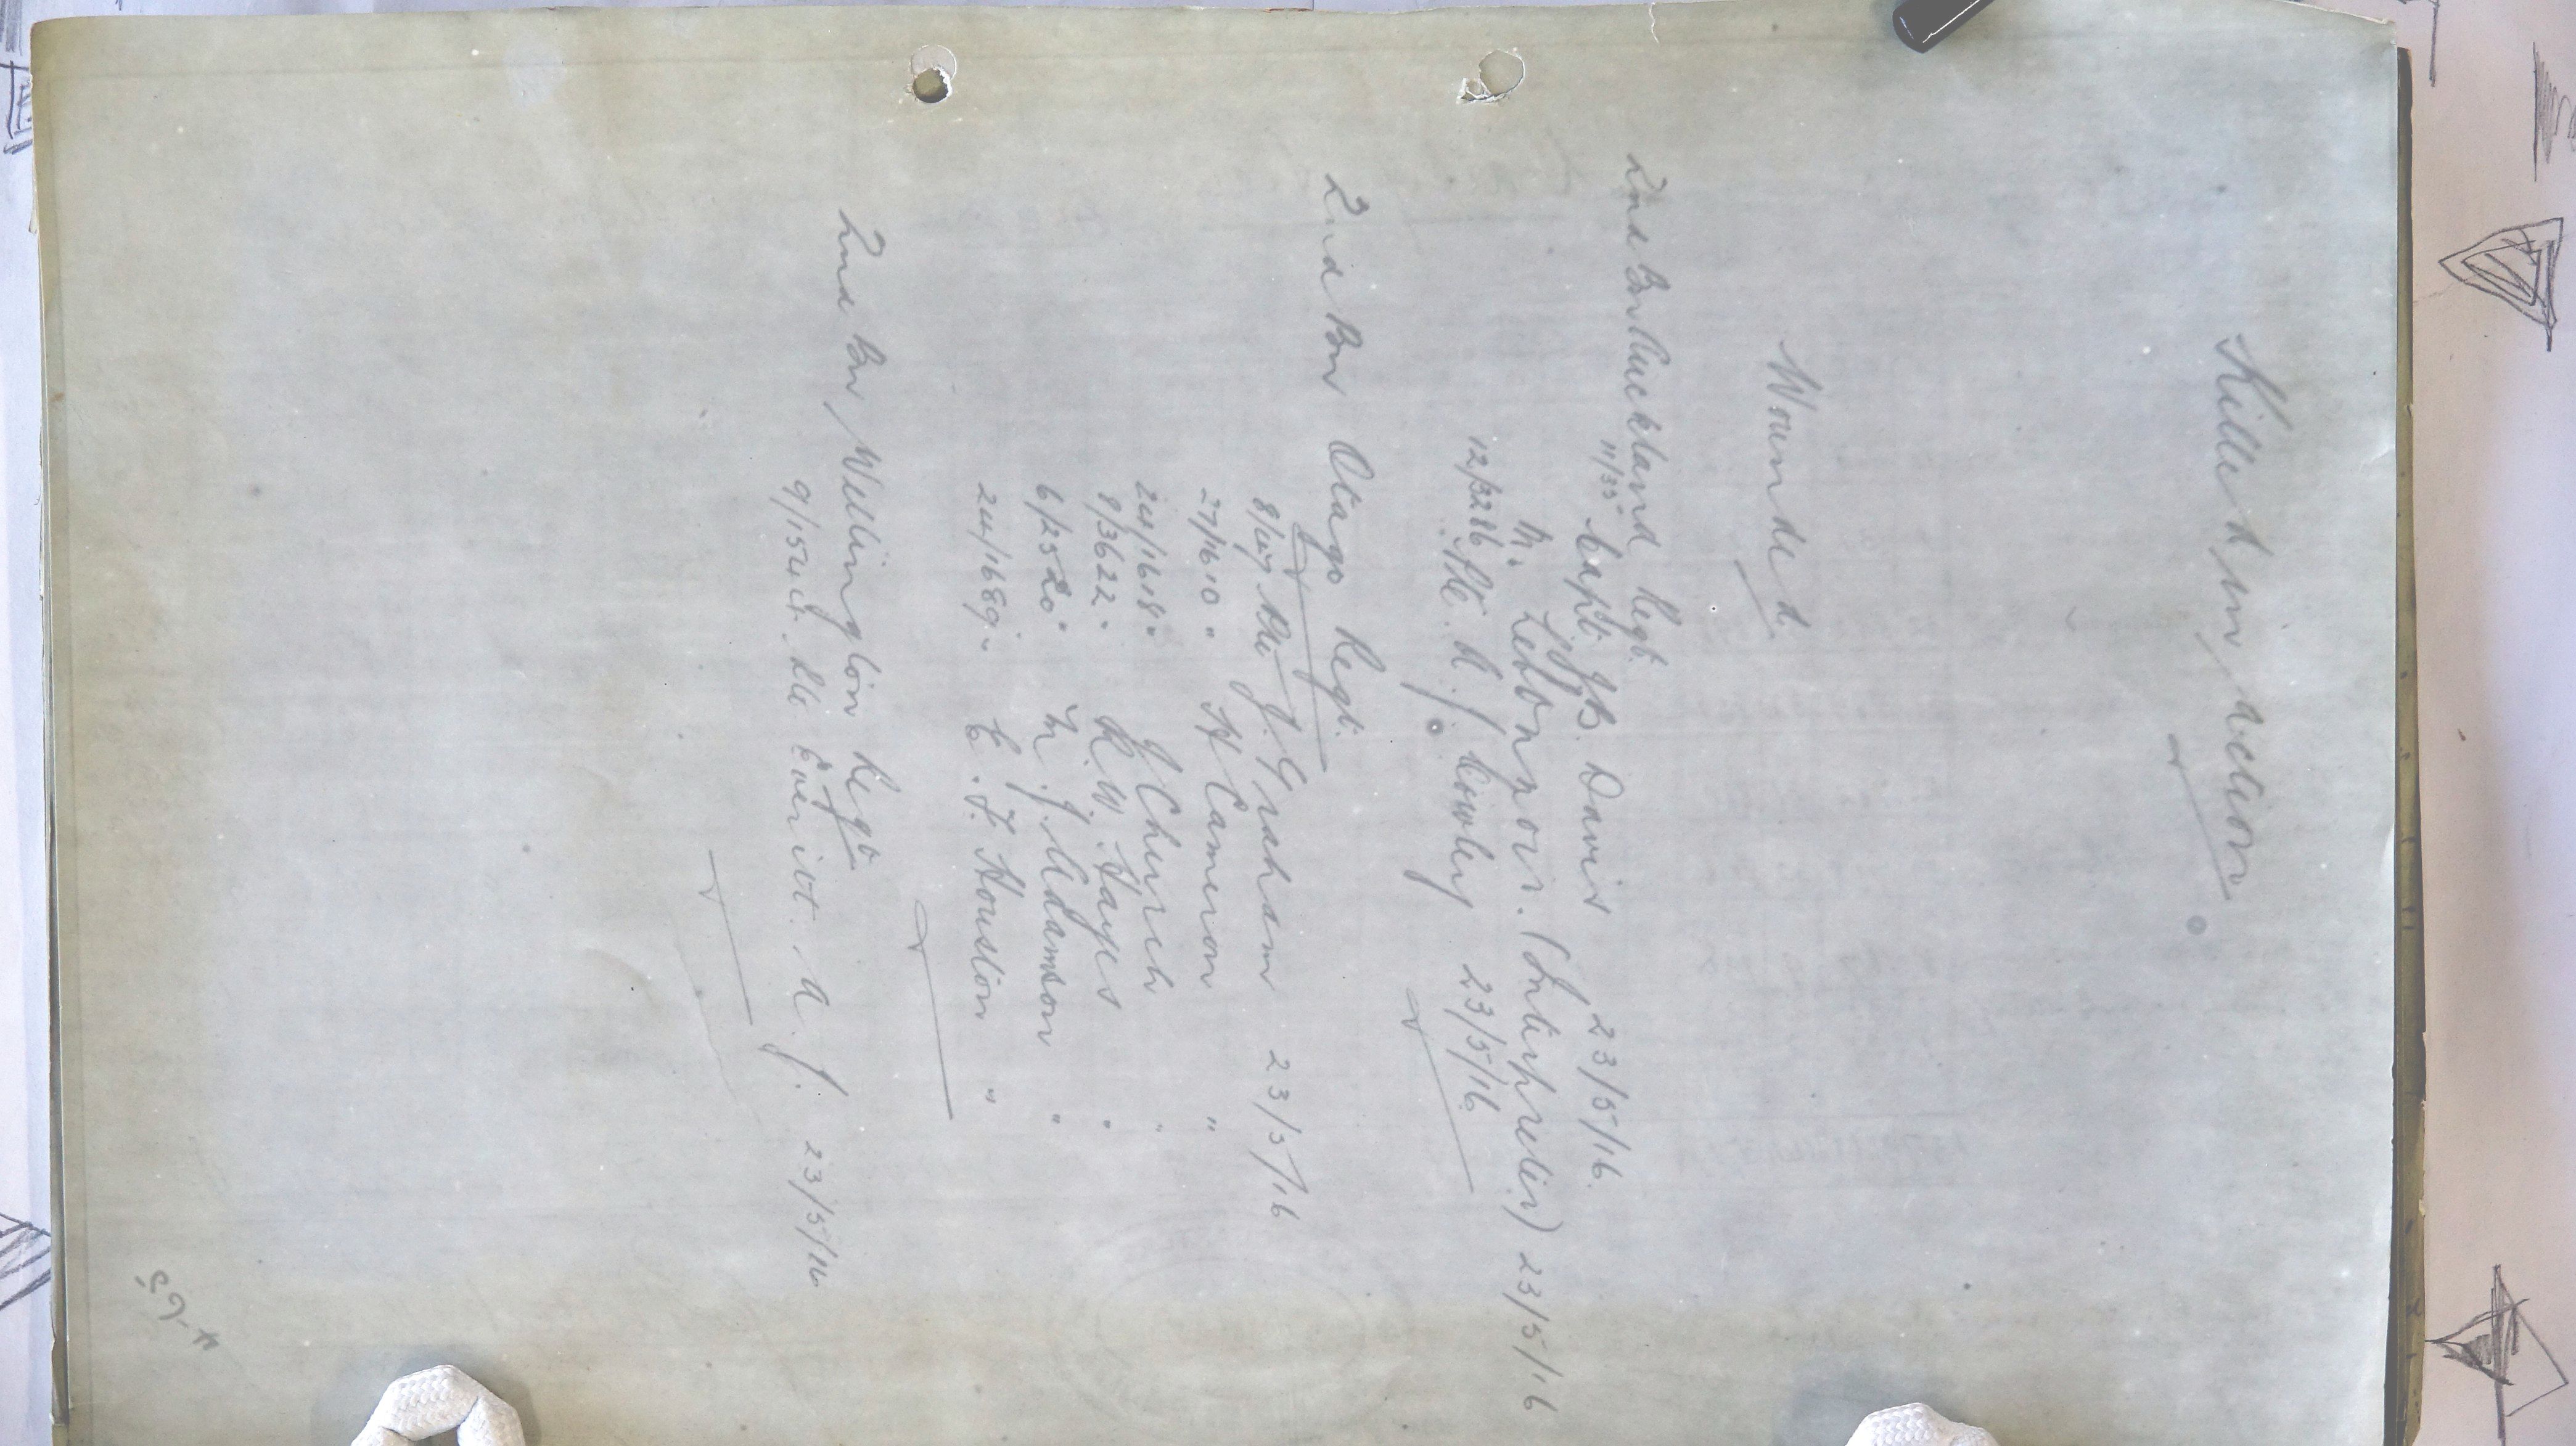 Killed in action
Wounded
2nd Bn Auckland Regt.
11/35 Capt. G.B. Davis 23/5/16.
M. Lebonnois. (Interpreter) 23/5/16
12/3286 Pte. A. J. Cowley 23/5/16
2nd Bn Otago Regt.
Pte J. Graham 23/5/16
27/1610 " H Cameron "
24/1618 " J Church "
8/3622 " R. W. Hayes "
6/2520 " M. J. Adamson "
24/1689 " C. F. Houston "
2nd Bn Wellington Regt
9/1544. Lt Everitt. A. J. 23/5/16